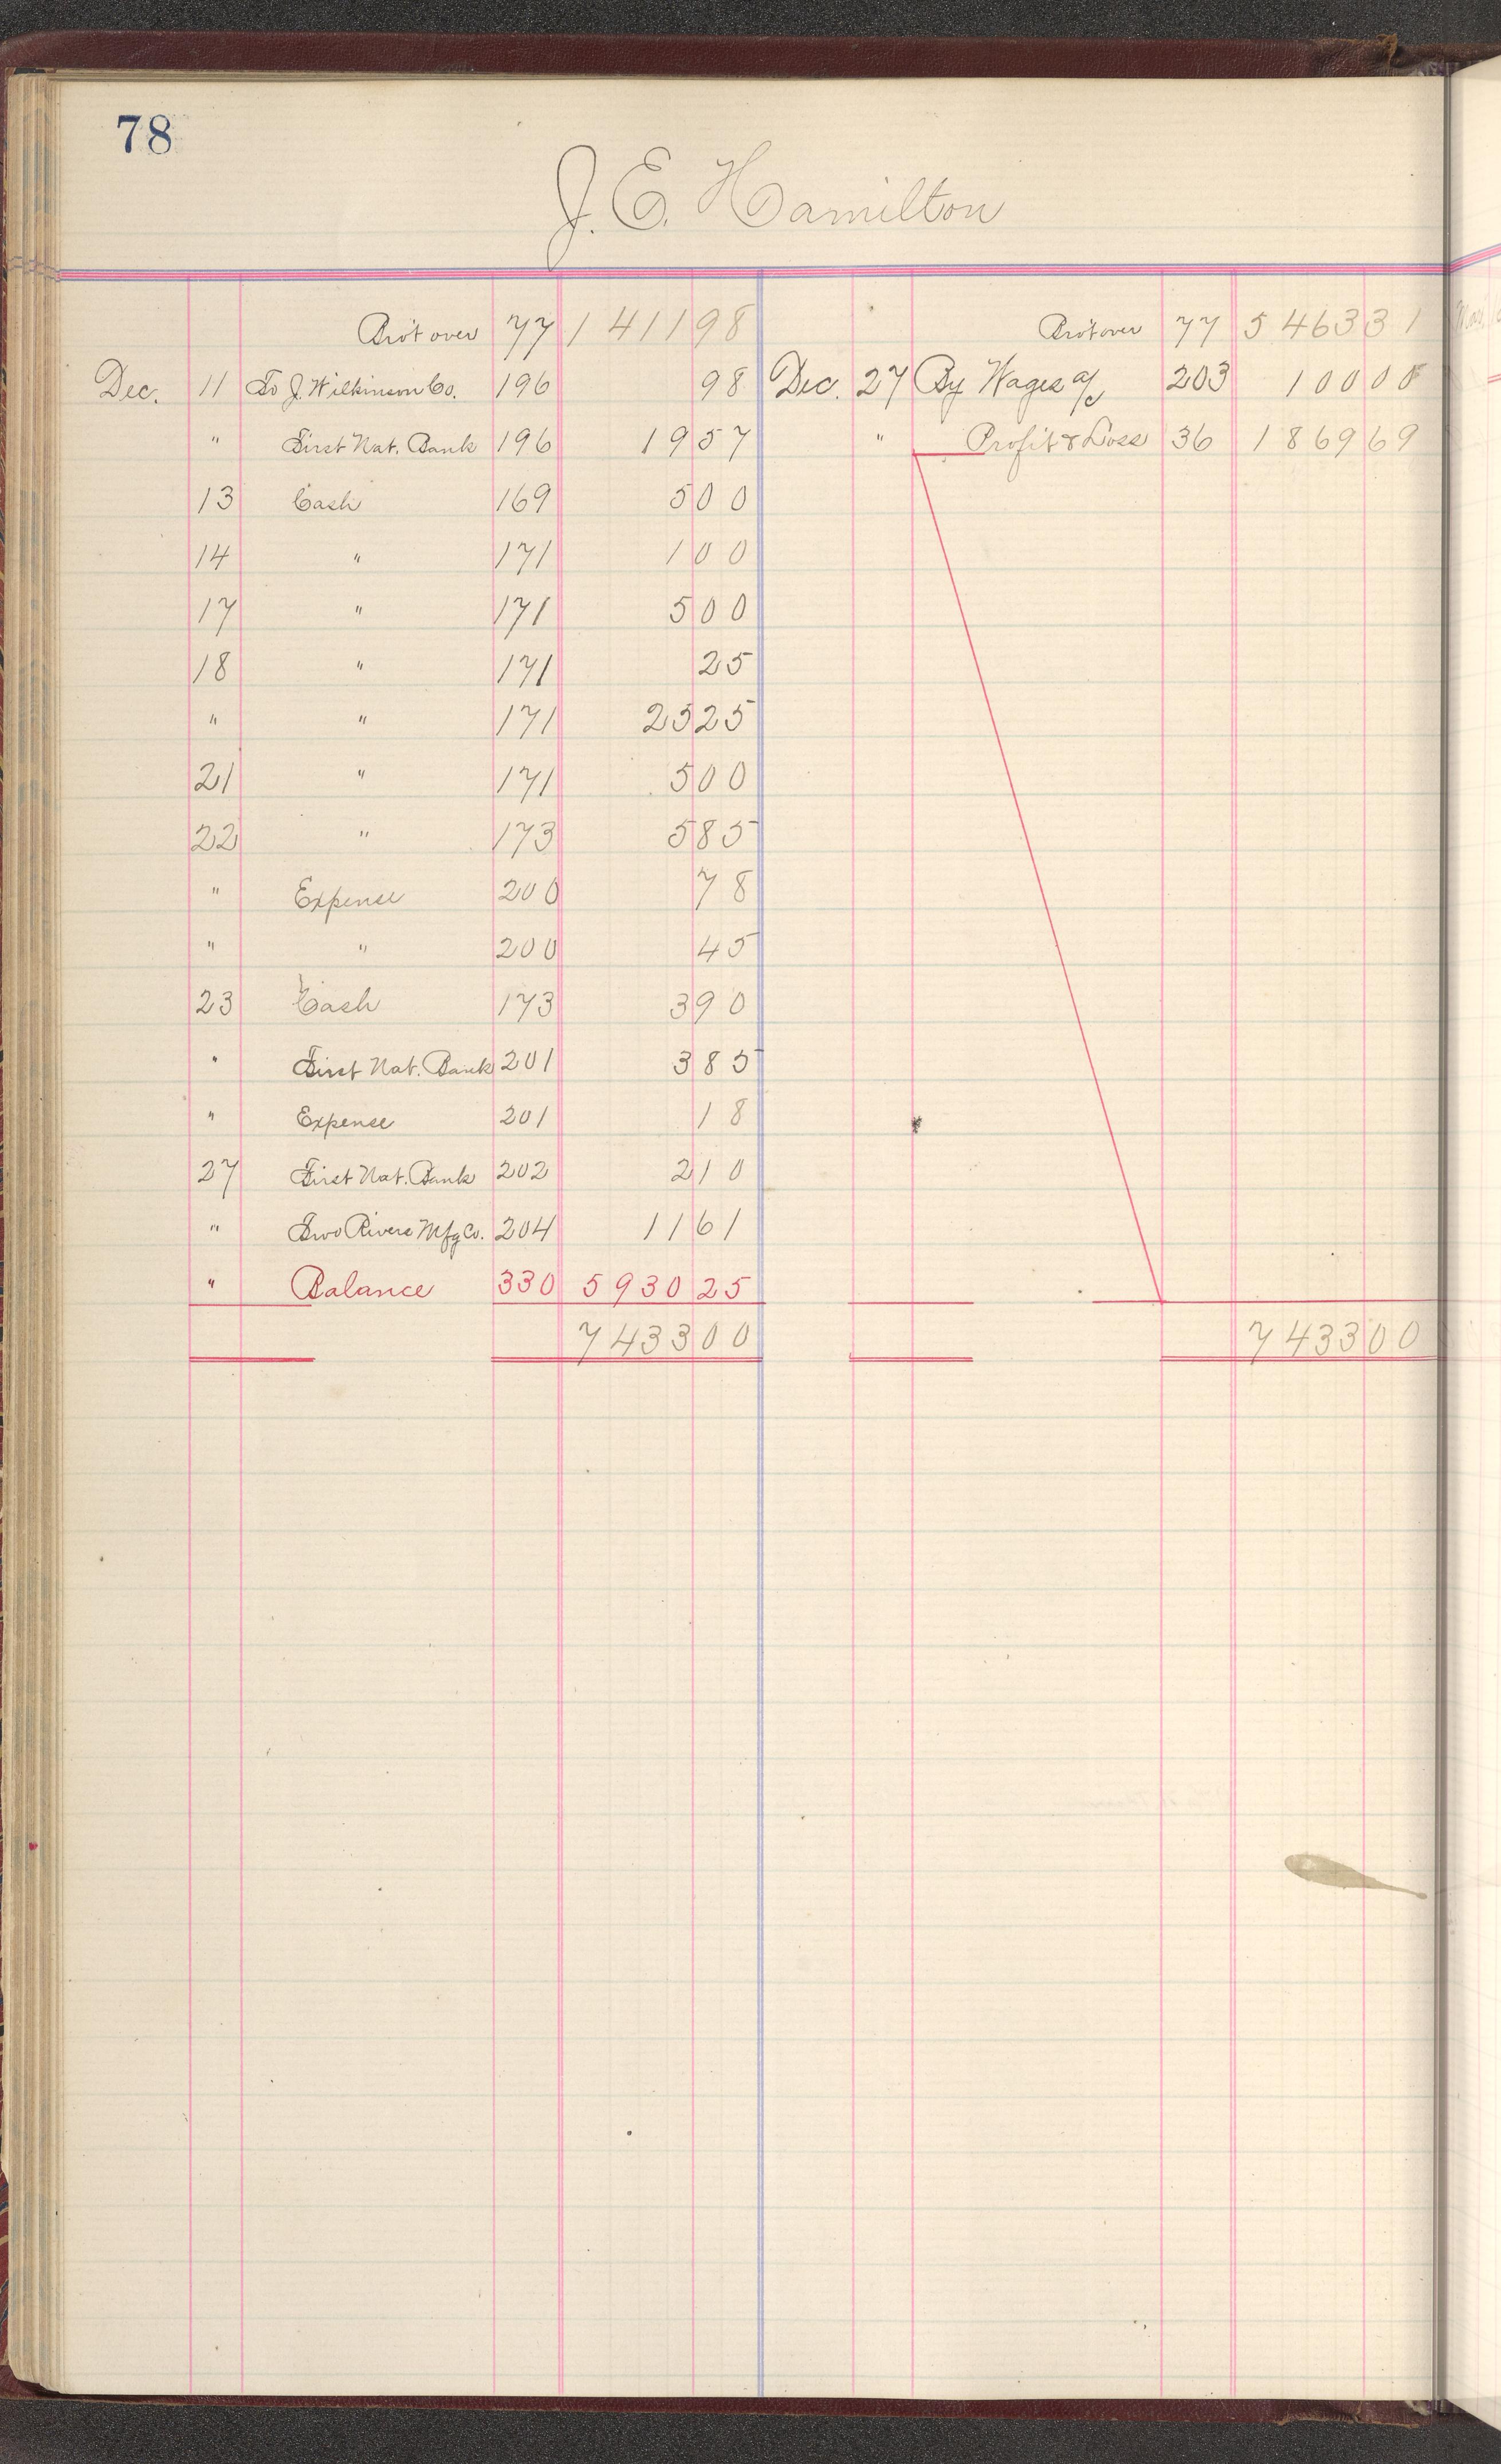 78
J. E. Hamilton
Bro't over 77 1411 98 Bro't over 77 5463 31
Dec. 11 To J. Wilkinson Co. 196 98 Dec. 27 By Wages a/c 203 100 00
" First Nat. Bank 196 19 57 " Profit & Loss 36 1869 69
13 Cash 169 5 00
14 " 171 1 00
17 " 171 5 00
18 " 171 25
" " 171 25 25
21 " 171 5 00
22 " 173 5 85
" Expense 200 78
" " 200 45
23 Cash 173 3 90
" First Nat. Bank 201 3 85
" Expense 201 18
27 First Nat. Bank 202 2 10
" Two Rivers Mfg Co. 204 11 61
" Balance 330 5930 25
7433 00 7433 00